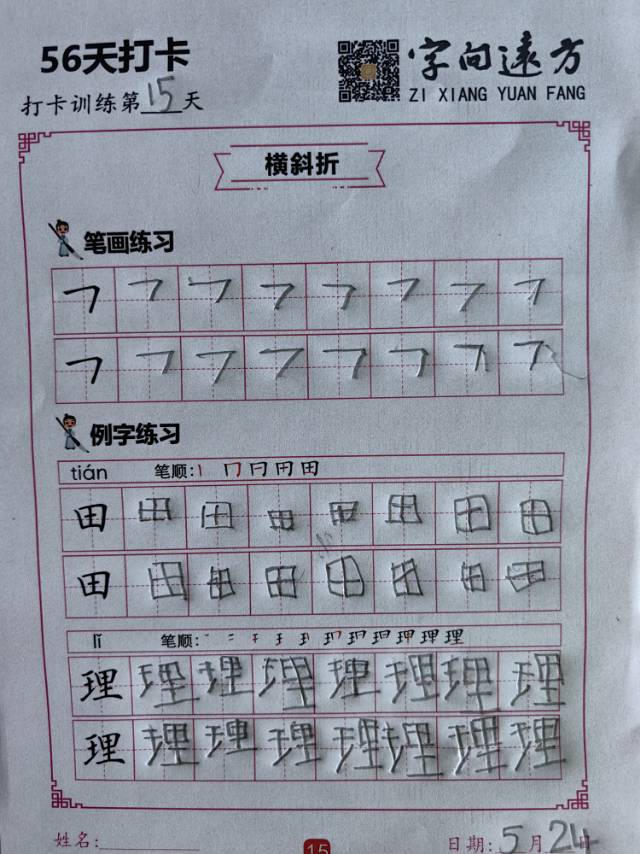 56天打卡
字向遠方
打卡训练第15天
ZI XIANG YUAN FANG
横斜折
笔画练习
㇇ ㇇ ㇇ ㇇ ㇇ ㇇ ㇇ ㇇
㇇ ㇇ ㇇ ㇇ ㇇ ㇇ ㇇ ㇇
例字练习
tián 笔顺: 丨 冂 日 田 田
田 田 田 田 田 田 田 田
田 田 田 田 田 田 田 田
lǐ 笔顺:
理 理 理 理 理 理 理 理
理 理 理 理 理 理 理 理
姓名:
15
日期: 5月24日